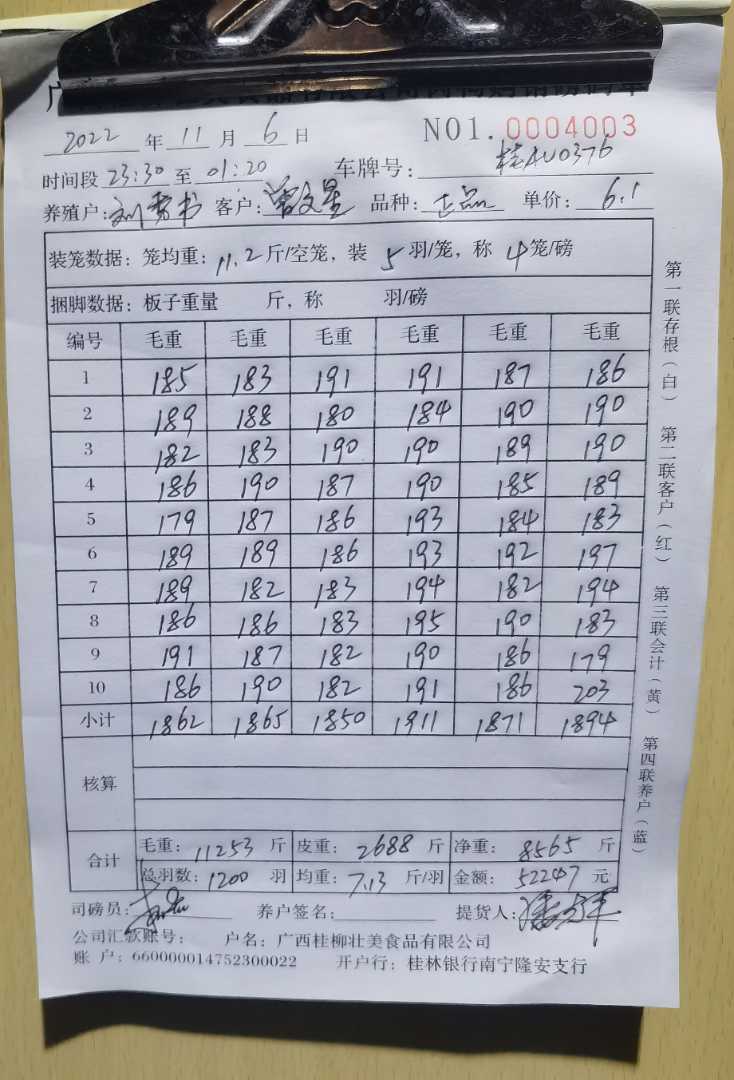 2022 年 11 月 6 日 NO1. 0004003
时间段 23:30 至 01:20 车牌号: 桂AU0376
养殖户: 刘 书 客户: 曾文星 品种: 正品 单价: 6.1
装笼数据: 笼均重: 11.2 斤/空笼, 装 5 羽/笼, 称 4 笼/磅
捆脚数据: 板子重量 斤, 称 羽/磅
编号 毛重 毛重 毛重 毛重 毛重 毛重
1 185 183 191 191 187 186
2 189 188 180 184 190 190
3 182 183 190 190 189 190
4 186 190 187 190 185 189
5 179 187 186 193 184 183
6 189 189 186 193 192 197
7 189 182 183 194 182 194
8 186 186 183 195 190 183
9 191 187 182 190 186 179
10 186 190 182 191 186 203
小计 1862 1865 1850 1911 1871 1894
核算
合计 毛重: 11253 斤 皮重: 2688 斤 净重: 8565 斤
总羽数: 1200 羽 均重: 7.13 斤/羽 金额: 52247 元
司磅员: 养户签名: 提货人:
公司汇款账号: 户名: 广西桂柳壮美食品有限公司
账 户: 660000014752300022 开户行: 桂林银行南宁隆安支行
第一联存根(白) 第二联客户(红) 第三联会计(黄) 第四联养户(蓝)